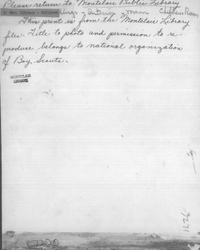 Please return to Montclair Public Library
This print is from the Montclair Library
files. Title to photo and permission to re-
produce belongs to national organization
of Boy Scouts.
MONTCLAIR
LIBRARY